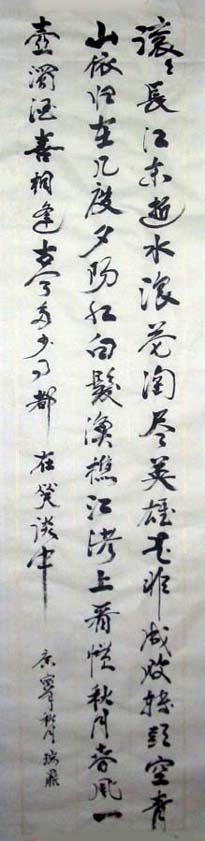 滚〻長江东逝水浪花淘尽英雄是非成败轉頭空青
山依旧在几度夕阳红白髮渔樵江渚上看惯秋月春風一
壶濁酒喜相逢古今多少事都在笑談中
庚寅秋月